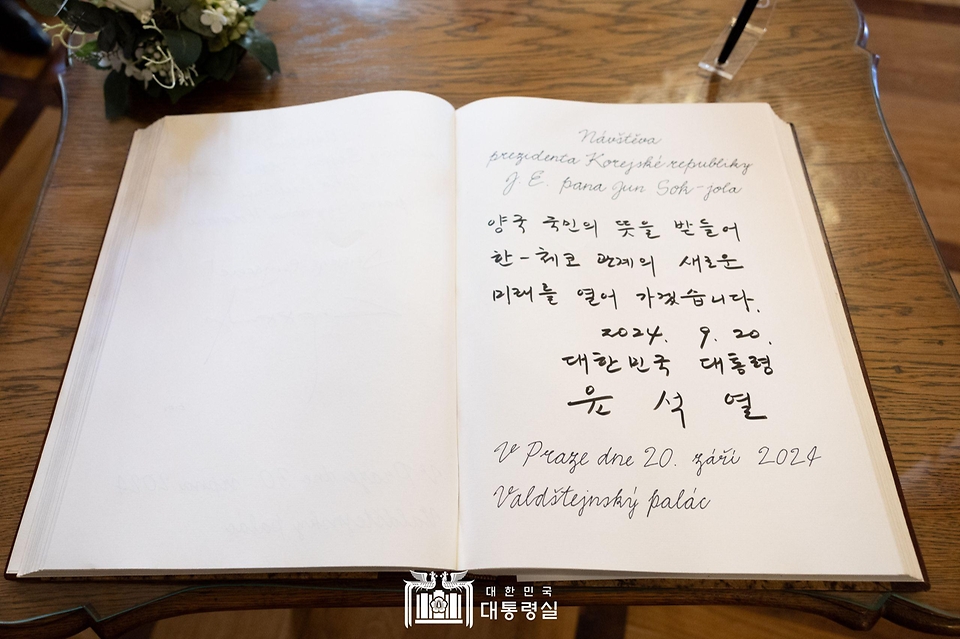 Návštěva
prezidenta Korejské republiky
J. E. pana Jun Sok-jola
양국 국민의 뜻을 받들어
한-체코 관계의 새로운
미래를 열어 가겠습니다.
2024. 9. 20.
대한민국 대통령
윤 석 열
V Praze dne 20. září 2024
Valdštejnský palác
대한민국
대통령실